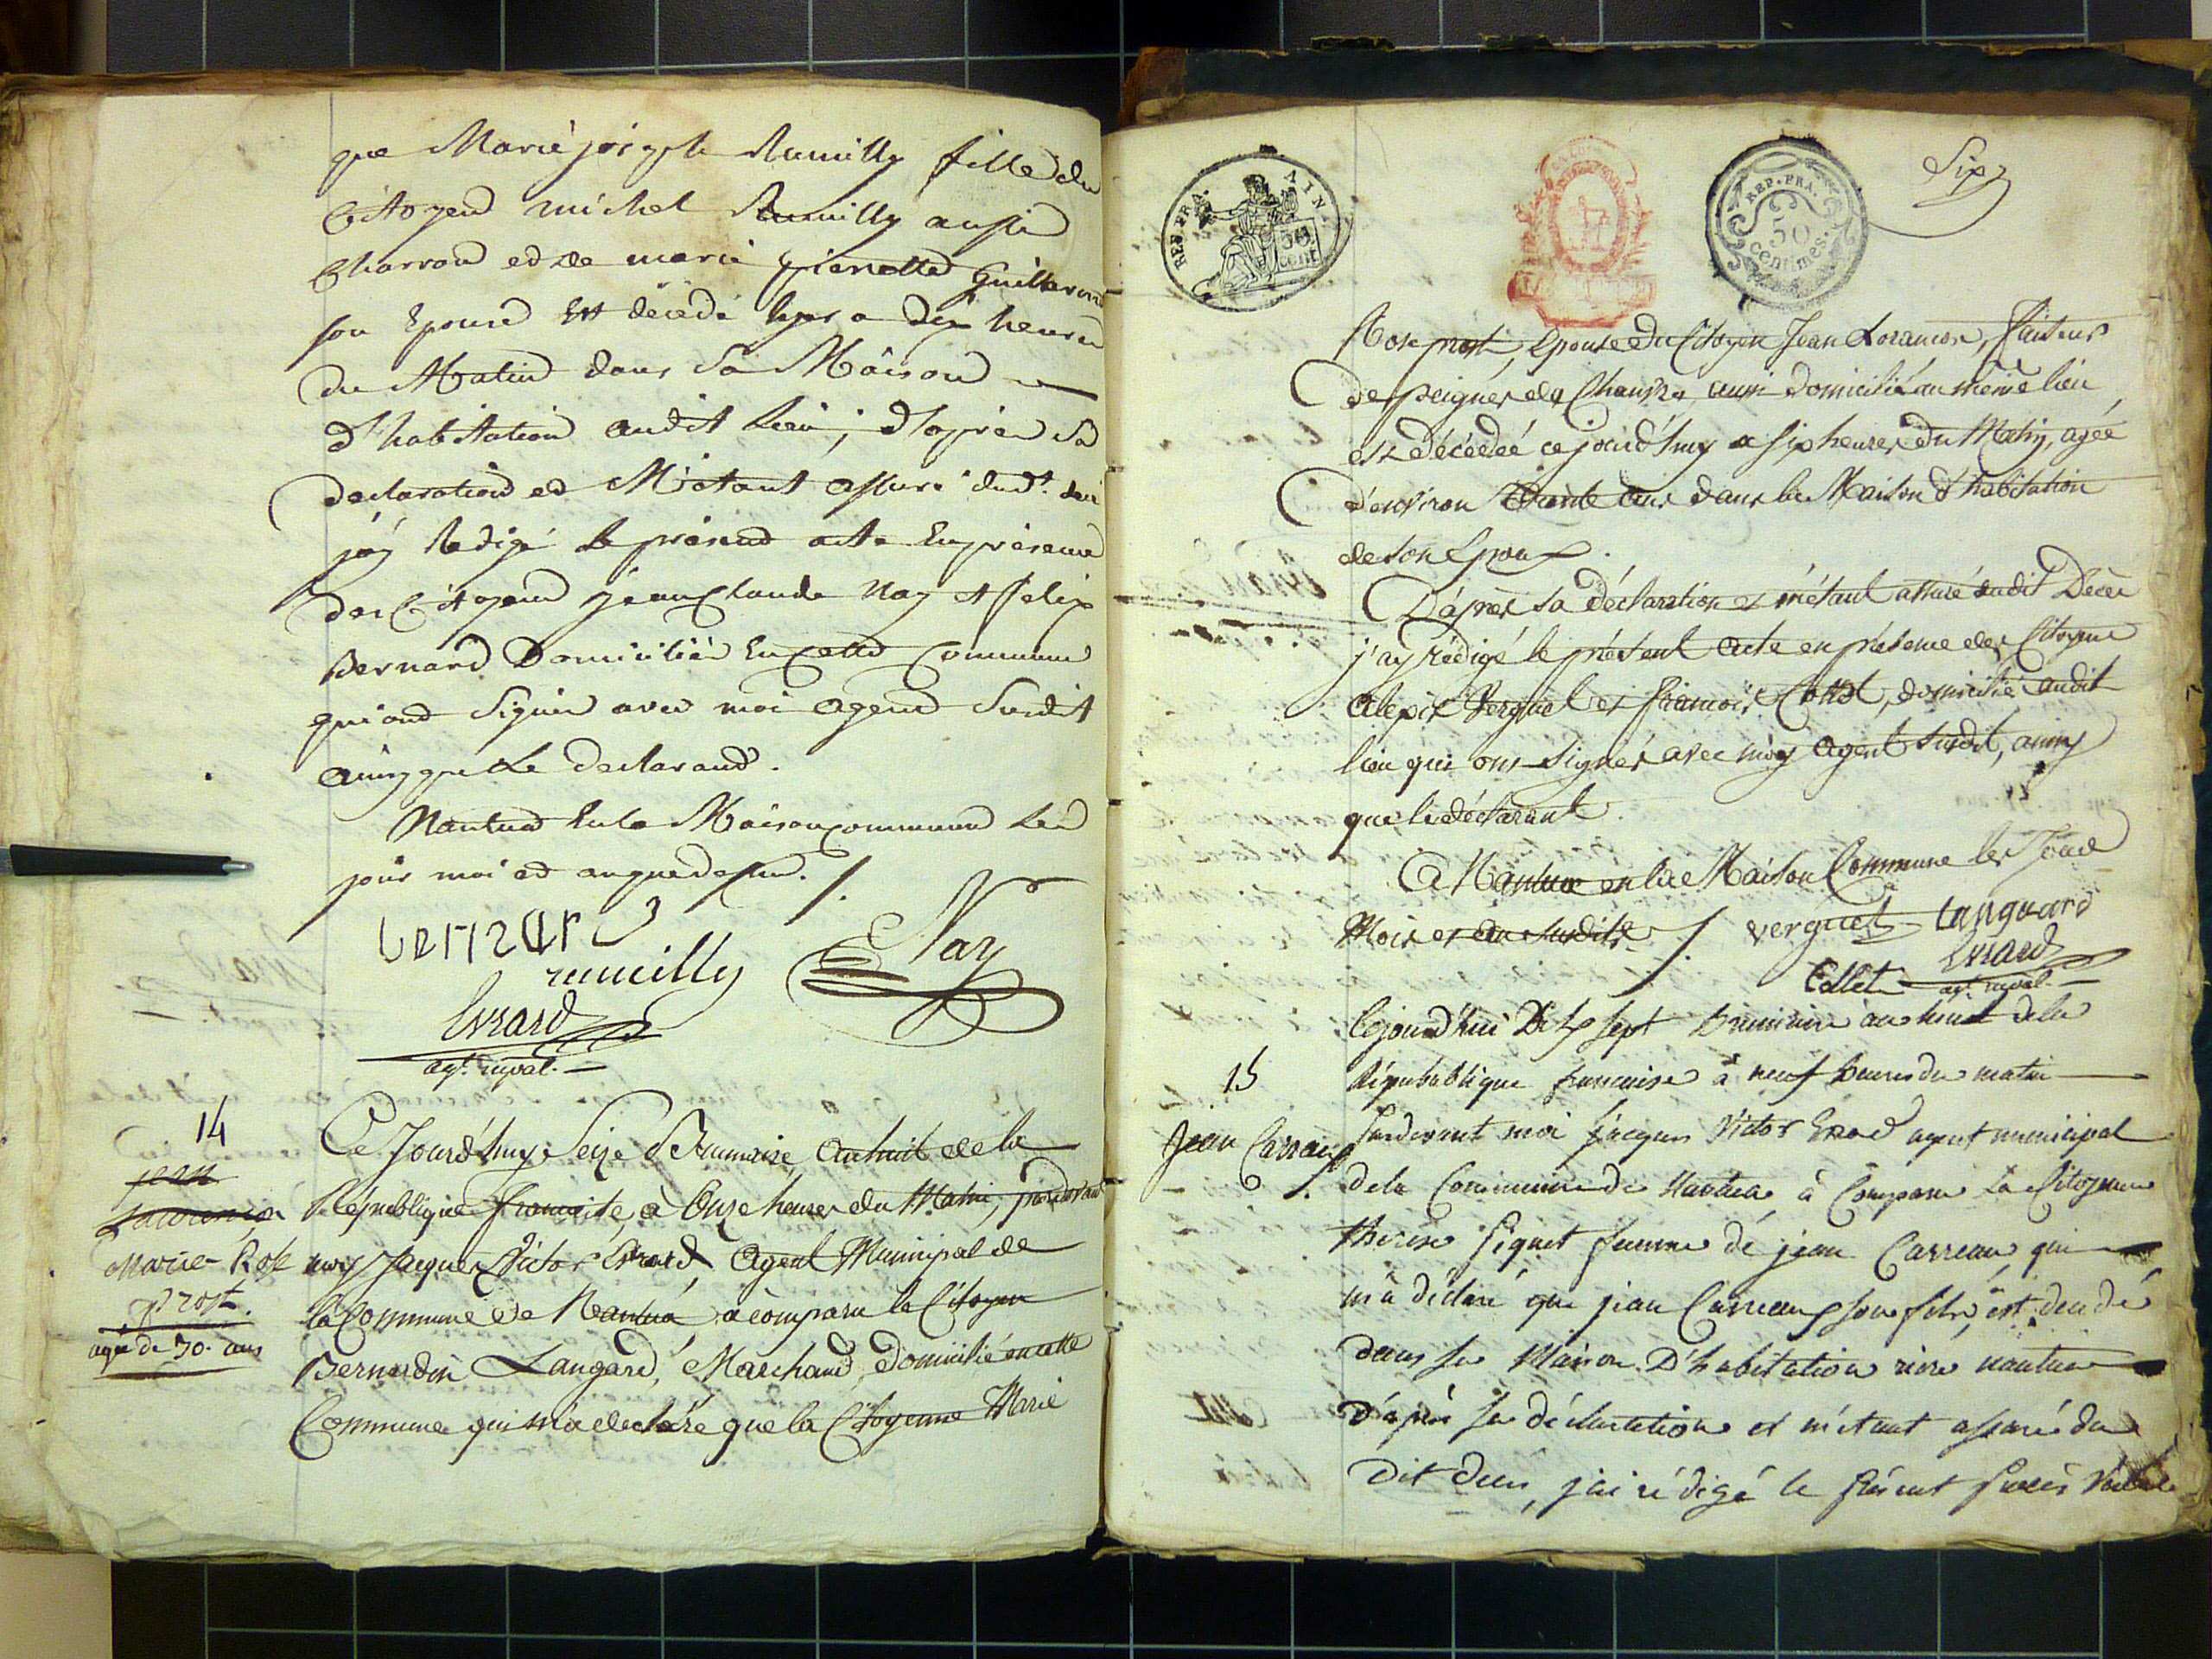 que Marie josephe Rumilly fille du
Citoyend michel Rumilly aussi
Charrond ed de marie pierrette Guillermet
son Epouse Est décédé hyer a dix heures
du Matind dans sa Maisond
d'habitation audit Lieu, d'après sa
declaration ed M'étant assuré dudt. deci
j'ay Redigé le présend acte En présence
des Citoyend jean Claude Nay et felix
Bernard Domiciliés En cette Commune
qui ond Signés avec moi agend Susdit
ainsy que Le declarand.
Nantua En la Maison commune Les
jour moi ed an que dessus. /.
bernard
rumilly
Nay
Evrard
agt. mpal.
14
jean
Laurençon
Marie-Rose
Prost.
agée de 30. ans
Ce Jourd'huy Seize Brumaire, an huit de la
République française, à Onze heures du Matin, pardevant
moy Jacques Victor Evrard Agent Municipal de
la Commune de Nantua a comparu le Citoyen
Bernardin Langard, Marchand, domicilié en cette
Commune qui m'a declaré que la Citoyenne Marie
REP. FRA.
AIN.
50
cent
REP. FRA.
50
centimes.
Six
Rose prost, Epouse du Citoyen Jean Loranson, faiseur
de peignes de Chanvre, aussi domicilié au même lieu
est décédée ce jourd'huy a six heures du Matin, agée
d'environ trente ans dans la Maison d'habitation
de son Epoux.
D'après sa déclaration et m'étant assuré dudit Décès
j'ay rédigé le présent acte en présence des Citoyens
alexis Verguet et françois Collet, domiciliés audit
lieu qui ont Signés avec moy Agent susdit, ainsy
que le déclarant.
A Nantua en la Maison Commune les Jour
Mois et an susdits /. verguet Languard
Collet Evrard
agt. mpal.
15
Jean Carreau
/.
Cejourd'hui Dix sept brumaire an huit de la
Répubablique francaise à neuf heures du matin
Pardevant moi jacques Victor Erard agent municipal
de la Commune de Nantua à Comparu La Citoyenne
thérèse Piquet femme de jean Carreau, qui
m'a déclaré que jean Carreau son fils, est decedé
dans sa Maison D'habitation rière nantua
D'après sa déclaration et m'étant assuré du
Dit deces, j'ai rédigé le présent procès Verbal